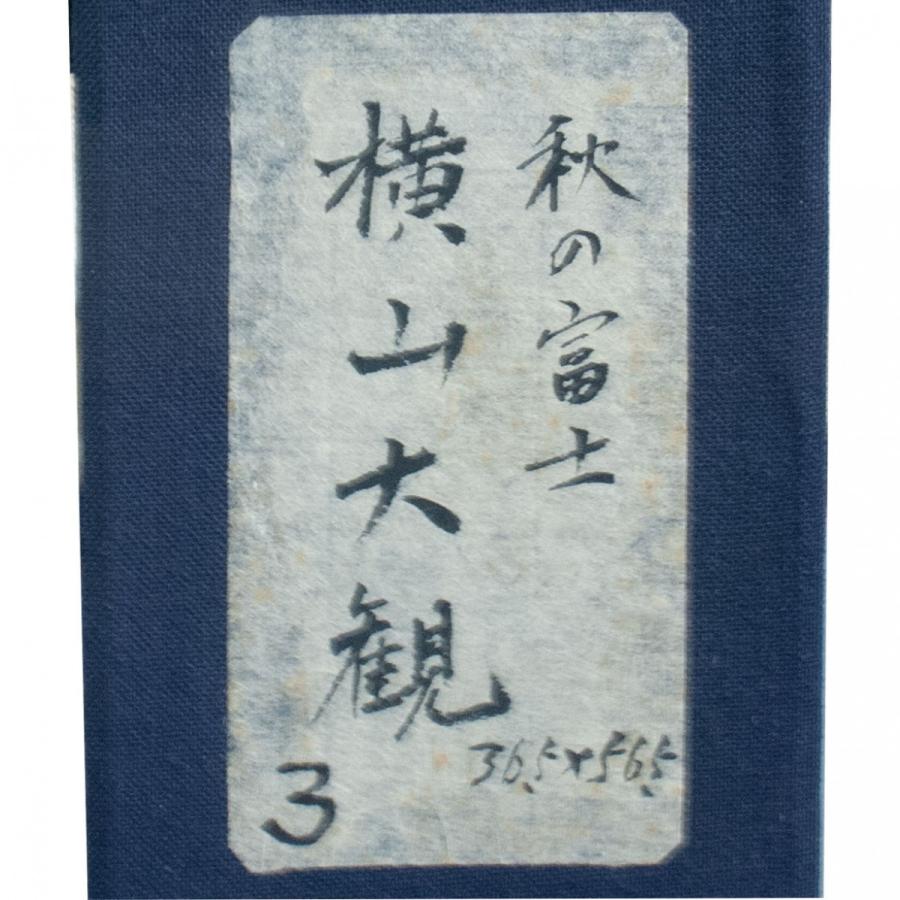 秋の富士
横山大観
36.5×56.5
3